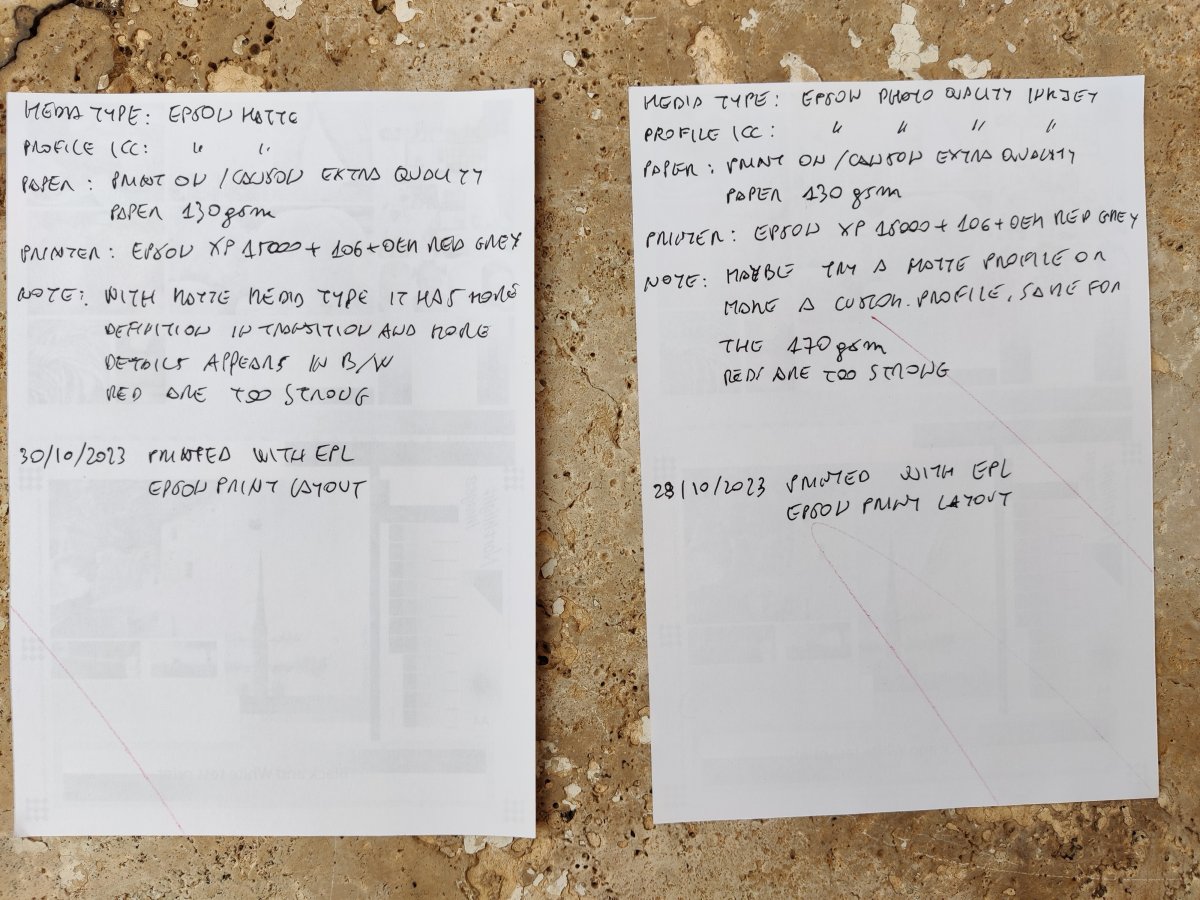 MEDIA TYPE: EPSON MATTE
PROFILE ICC: " "
PAPER: PRINT ON / CANSON EXTRA QUALITY
PAPER 130 gsm
PRINTER: EPSON XP 15000 + 106 + OEM RED GREY
NOTE: WITH MATTE MEDIA TYPE IT HAS MORE
DEFINITION IN TRANSITION AND MORE
DETAILS APPEARS IN B/W
RED ARE TOO STRONG
30/10/2023 PRINTED WITH EPL
EPSON PRINT LAYOUT
MEDIA TYPE: EPSON PHOTO QUALITY INKJET
PROFILE ICC: " " " "
PAPER: PRINT ON / CANSON EXTRA QUALITY
PAPER 130 gsm
PRINTER: EPSON XP 15000 + 106 + OEM RED GREY
NOTE: MAYBE TRY A MATTE PROFILE OR
MAKE A CUSTOM PROFILE, SAME FOR
THE 170 gsm
REDS ARE TOO STRONG
28/10/2023 PRINTED WITH EPL
EPSON PRINT LAYOUT